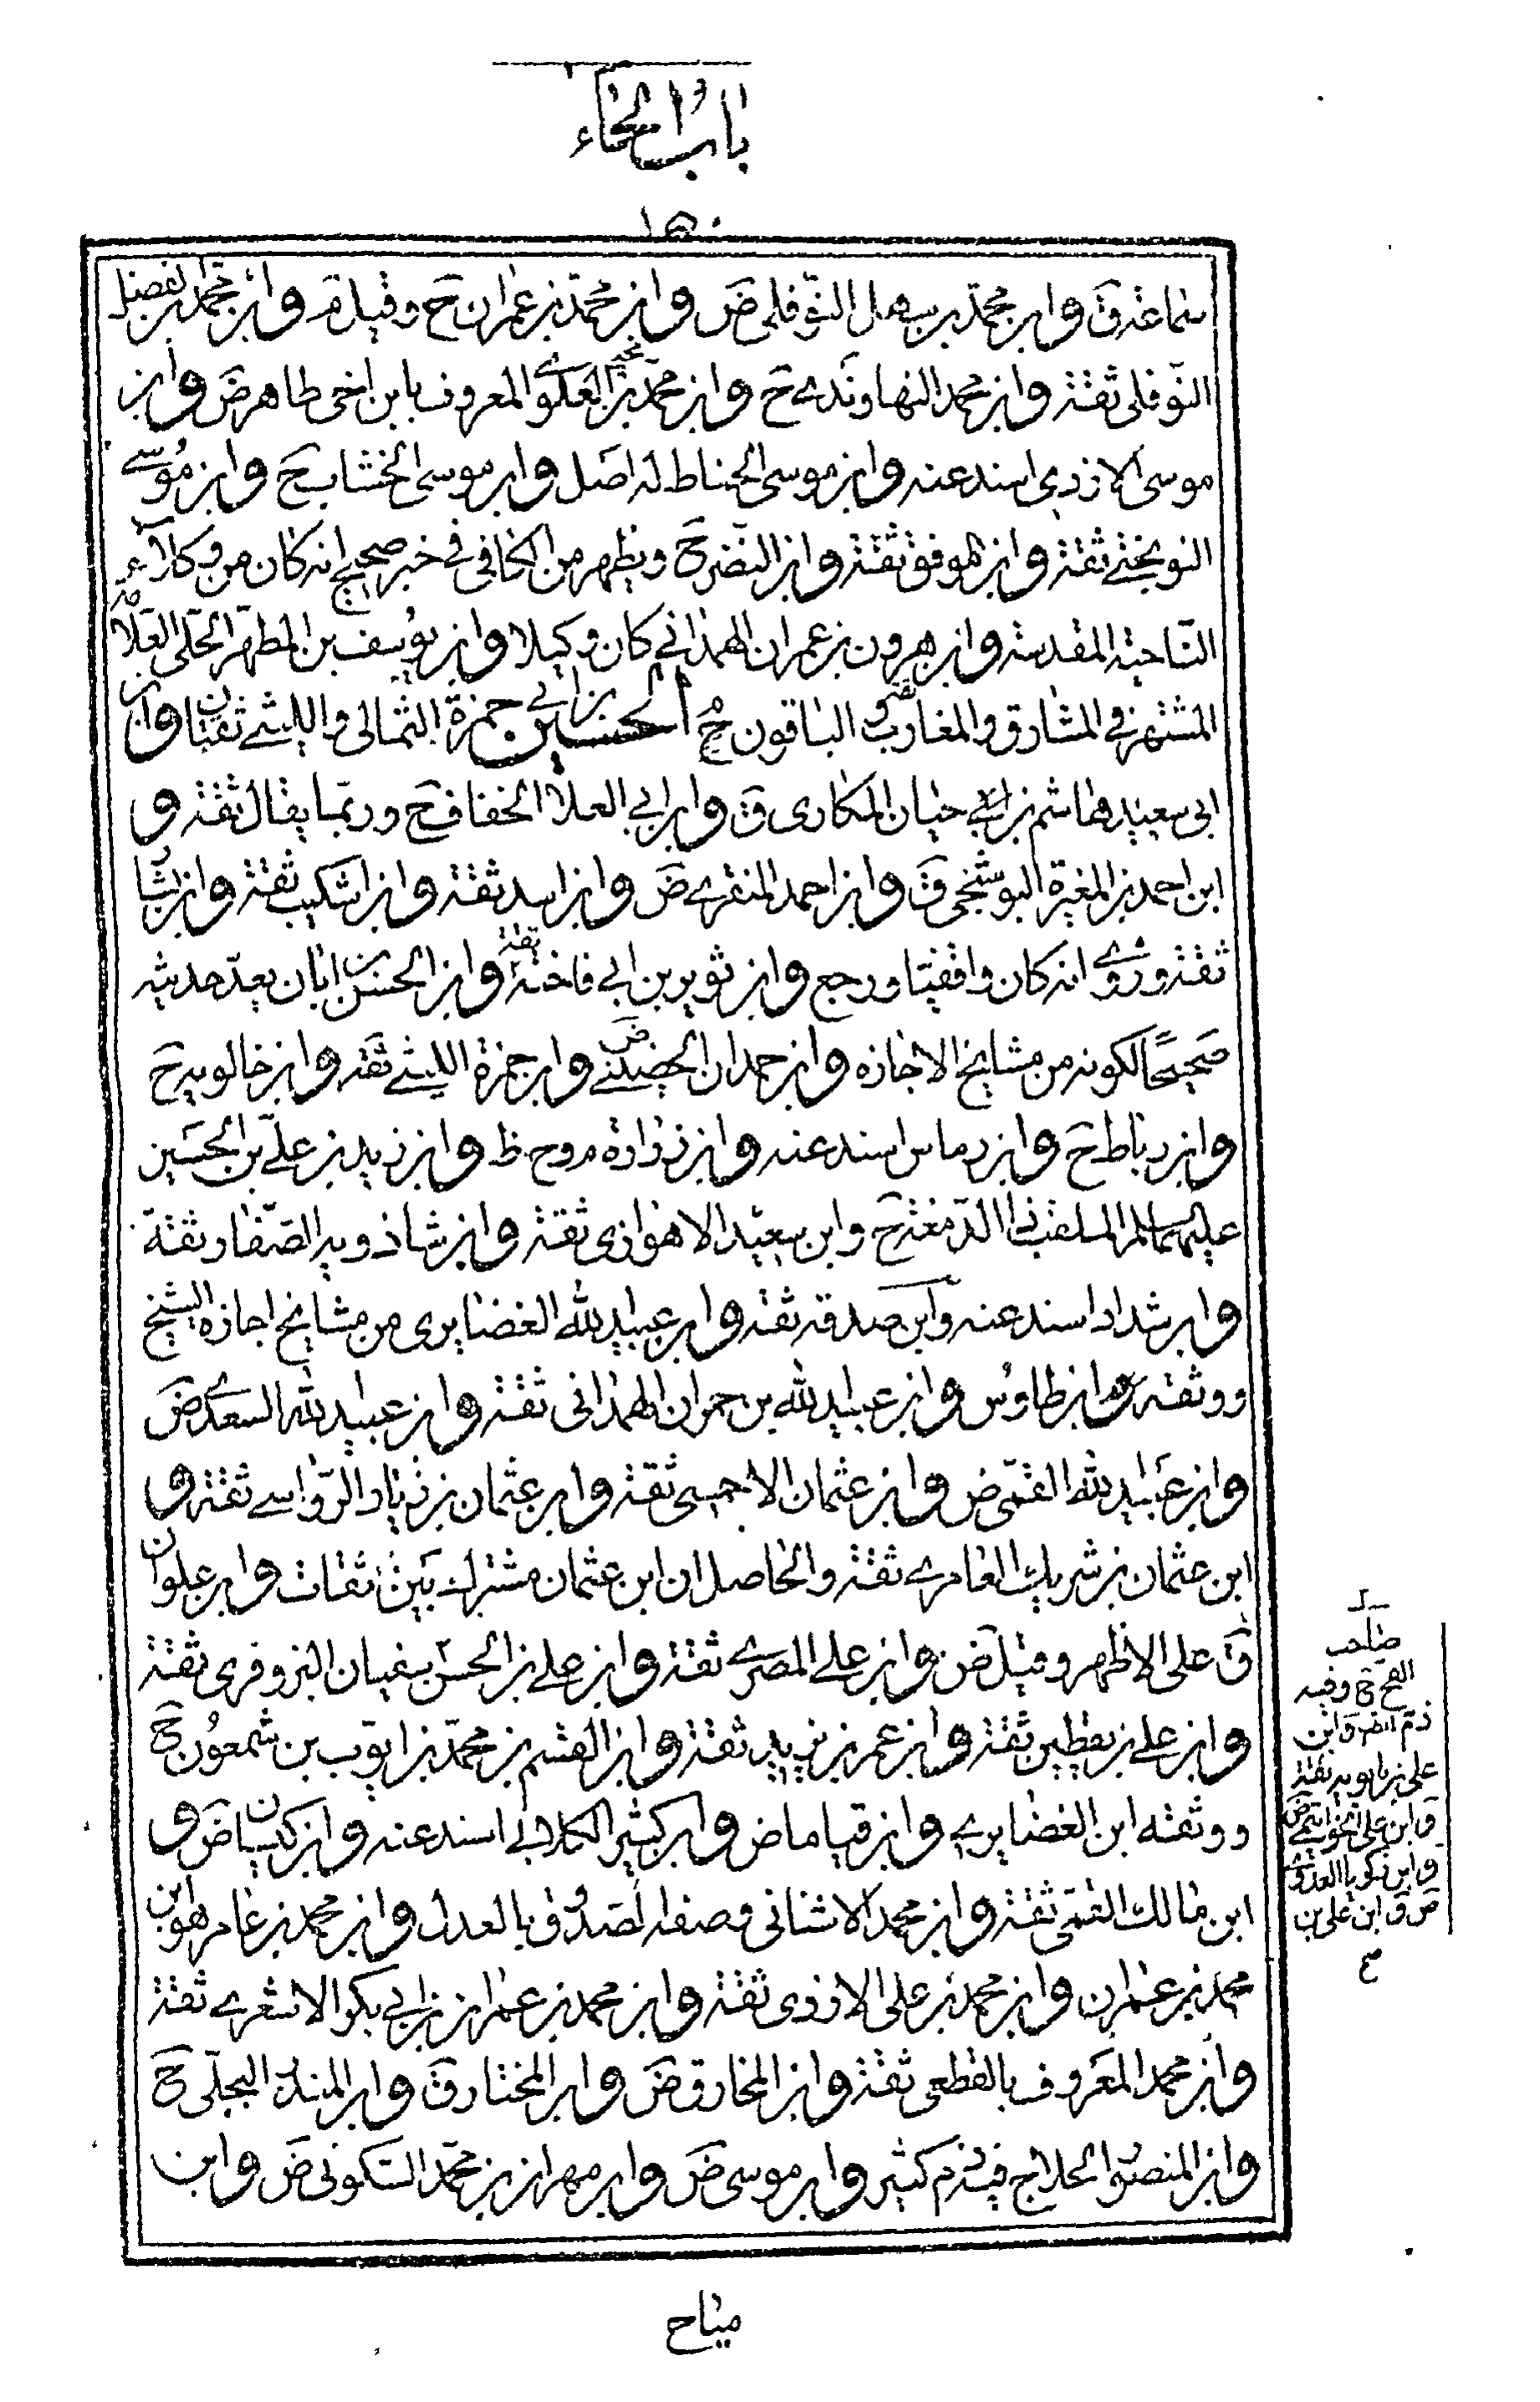 باب الحاء
١٥٠
سماعة ق وابن محمد بن سهل النوفلي ض وابن محمد بن عمران ح وقيل م وابن محمد بن الفضل
النوفلي ثقة وابن محمد النهاوندي ح وابن محمد بن العلوي المعروف بابن اخي طاهر ض وابن
موسى الازدي اسند عنه وابن موسى الحناط له اصل وابن موسى الخشاب ح وابن موسى
النوبختي ثقة وابن موفق ثقة وابن النضر ح ويظهر من الكافي في خبر صحيح انه كان من وكلاء
الناحية المقدسة وابن هرون بن عمران الهمذاني كان وكيلا وابن يوسف بن المطهر الحلي العلامة
المشتهر في المشارق والمغارب والباقون م الحسين بن ابي حمزة الثمالي والليثي ثقتان وابن
ابي سعيد هاشم بن ابي حيان المكاري ق وابن ابي العلاء الخفاف ح وربما يقال ثقة و
ابن احمد بن المغيرة البوشنجي ق وابن احمد المنقري ض وابن اسد ثقة وابن اشكيب ثقة وابن بشار
ثقة وروي انه كان واقفيا ورجع وابن ثوير بن ابي فاختة ثقة وابن الحسن بن ابان يعد حديثه
صحيحا لكونه من مشايخ الاجازه وابن حمدان الحضيني ض وابن حمزة الليثي ثقة وابن خالويه ح
وابن رباط ح وابن رماس اسند عنه وابن زرارة ممدوح ظ وابن زيد بن علي بن الحسين
عليهما السلم الملقب بذا الدمعة ح وابن سعيد الاهوازي ثقة وابن شاذويه الصفار ثقة
وابن شداد اسند عنه وابن صدقة ثقة وابن عبيد الله الغضايري من مشايخ اجازه الشيخ
ووثقه ابن طاوس وابن عبيد الله بن حمران الهمداني ثقة وابن عبيد الله السعدي ض
وابن عبيد الله القمي ض وابن عثمان الاحمسي ثقة وابن عثمان بن زياد الرواسي ثقة و
ابن عثمان بن شريك العامري ثقة والحاصل ان ابن عثمان مشترك بين ثقات وابن علوان
ق على الاظهر وقيل ض وابن علي المصري ثقة وابن علي بن الحسن سفيان البزوفري ثقة
وابن علي بن يقطين ثقة وابن عمر بن يزيد ثقة وابن القسم بن محمد بن ايوب بن شمعون ح
ووثقه ابن الغضايري وابن قياما ض وابن كثير الكلابي اسند عنه وابن كيسان ض و
ابن مالك القمي ثقة وابن محمد الاشناني وصفه الصدوق بالعدل وابن محمد بن عامر هو ابن
محمد بن عمران وابن محمد بن علي الازدي ثقة وابن محمد بن عمران بن ابي بكر الاشعري ثقة
وابن محمد المعروف بالقطعي ثقة وابن المخارق ض وابن المختار ق وابن المنذر البجلي ح
وابن المنصور الحلاج فيه ذم كثير وابن موسى ض وابن مهران بن محمد السكوني ض وابن
صاحب
الفخ ح وفيه
ذم ايضا وابن
علي بن بابويه ثقة
وابن علي الخواتيمي ض
وابن زكريا العدوي
ض ق ابن علي بن
مياح